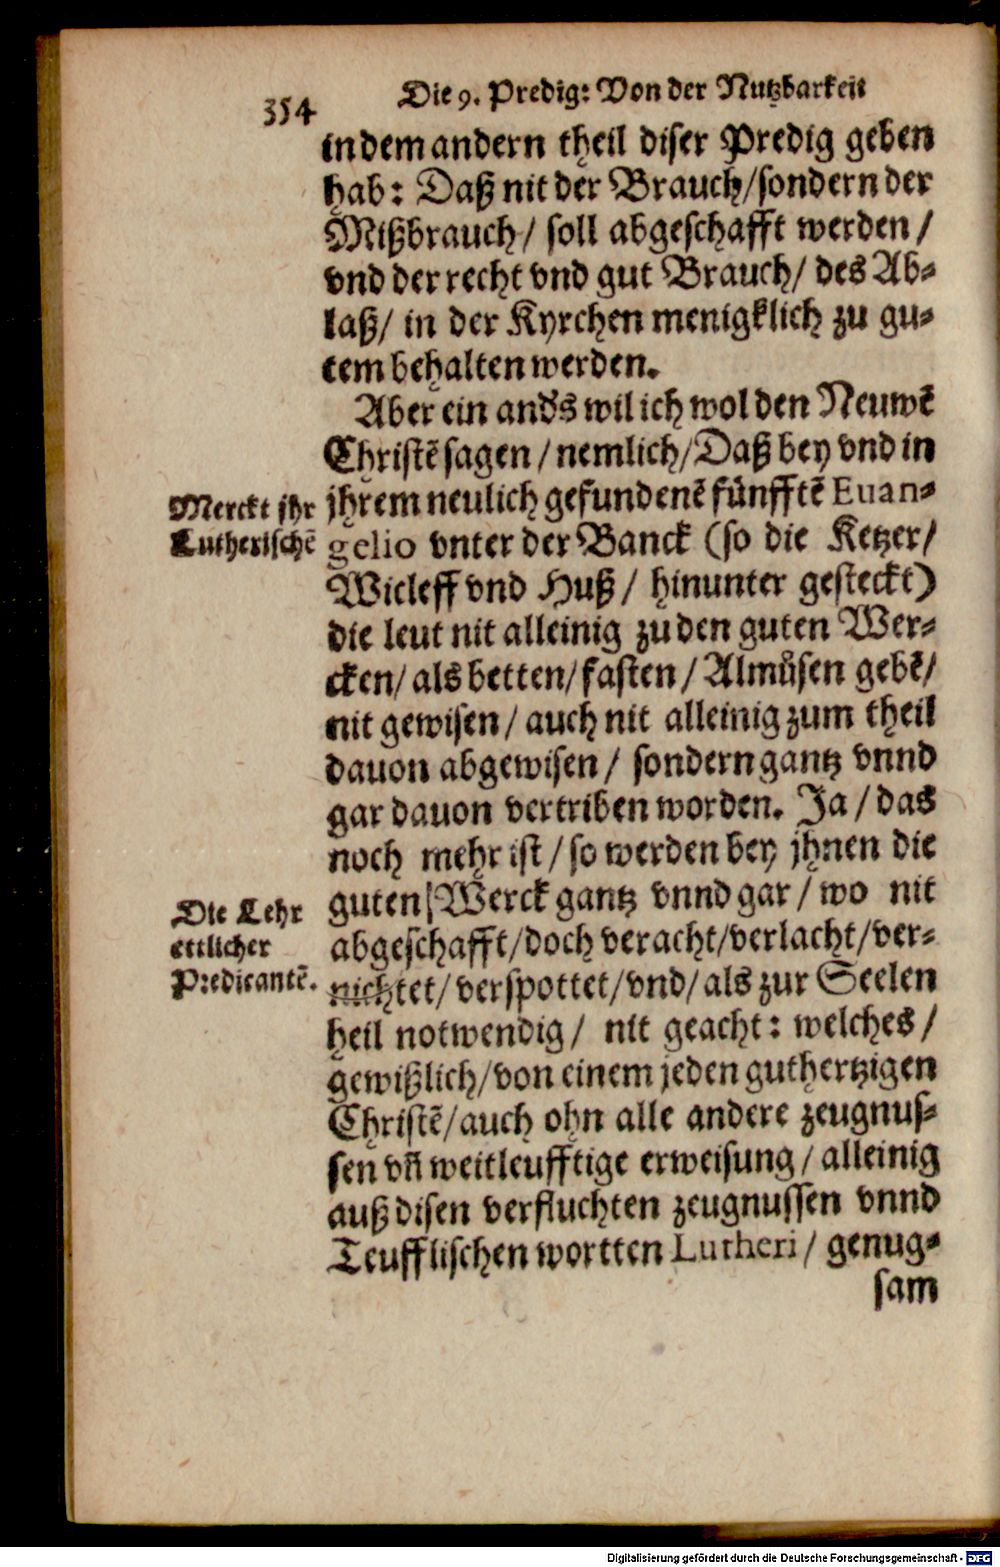 354
Die 9. Predig: Von der Nutzbarkeit
in dem andern theil diser Predig geben
hab: Daß nit der Brauch/sondern der
Mißbrauch/ soll abgeschafft werden/
vnd der recht vnd gut Brauch/ des Ab-
laß/ in der Kyrchen menigklich zu gu-
tem behalten werden.
Aber ein anďs wil ich wol den Neuwẽ
Christẽ sagen/nemlich/Daß bey vnd in
Merckt jhr
Lutherischẽ
jhrem neulich gefundenẽ fünfftẽ Euan-
gelio vnter der Banck (so die Ketzer/
Wicleff vnd Huß/ hinunter gesteckt)
die leut nit alleinig zu den guten Wer-
cken/als betten/fasten/Almůsen gebẽ/
nit gewisen/auch nit alleinig zum theil
dauon abgewisen/ sondern gantz vnnd
gar dauon vertriben worden. Ja/das
noch mehr ist/so werden bey jhnen die
Die Lehr
ettlicher
Predicantẽ.
guten Werck gantz vnnd gar/wo nit
abgeschafft/doch veracht/verlacht/ver-
nichtet/verspottet/vnd/als zur Seelen
heil notwendig/ nit geacht: welches/
gewißlich/von einem jeden guthertzigen
Christẽ/auch ohn alle andere zeugnus-
sen vñ weitleufftige erweisung/alleinig
auß disen verfluchten zeugnussen vnnd
Teufflischen wortten Lutheri/ genug-
sam
Digitalisierung gefördert durch die Deutsche Forschungsgemeinschaft - DFG